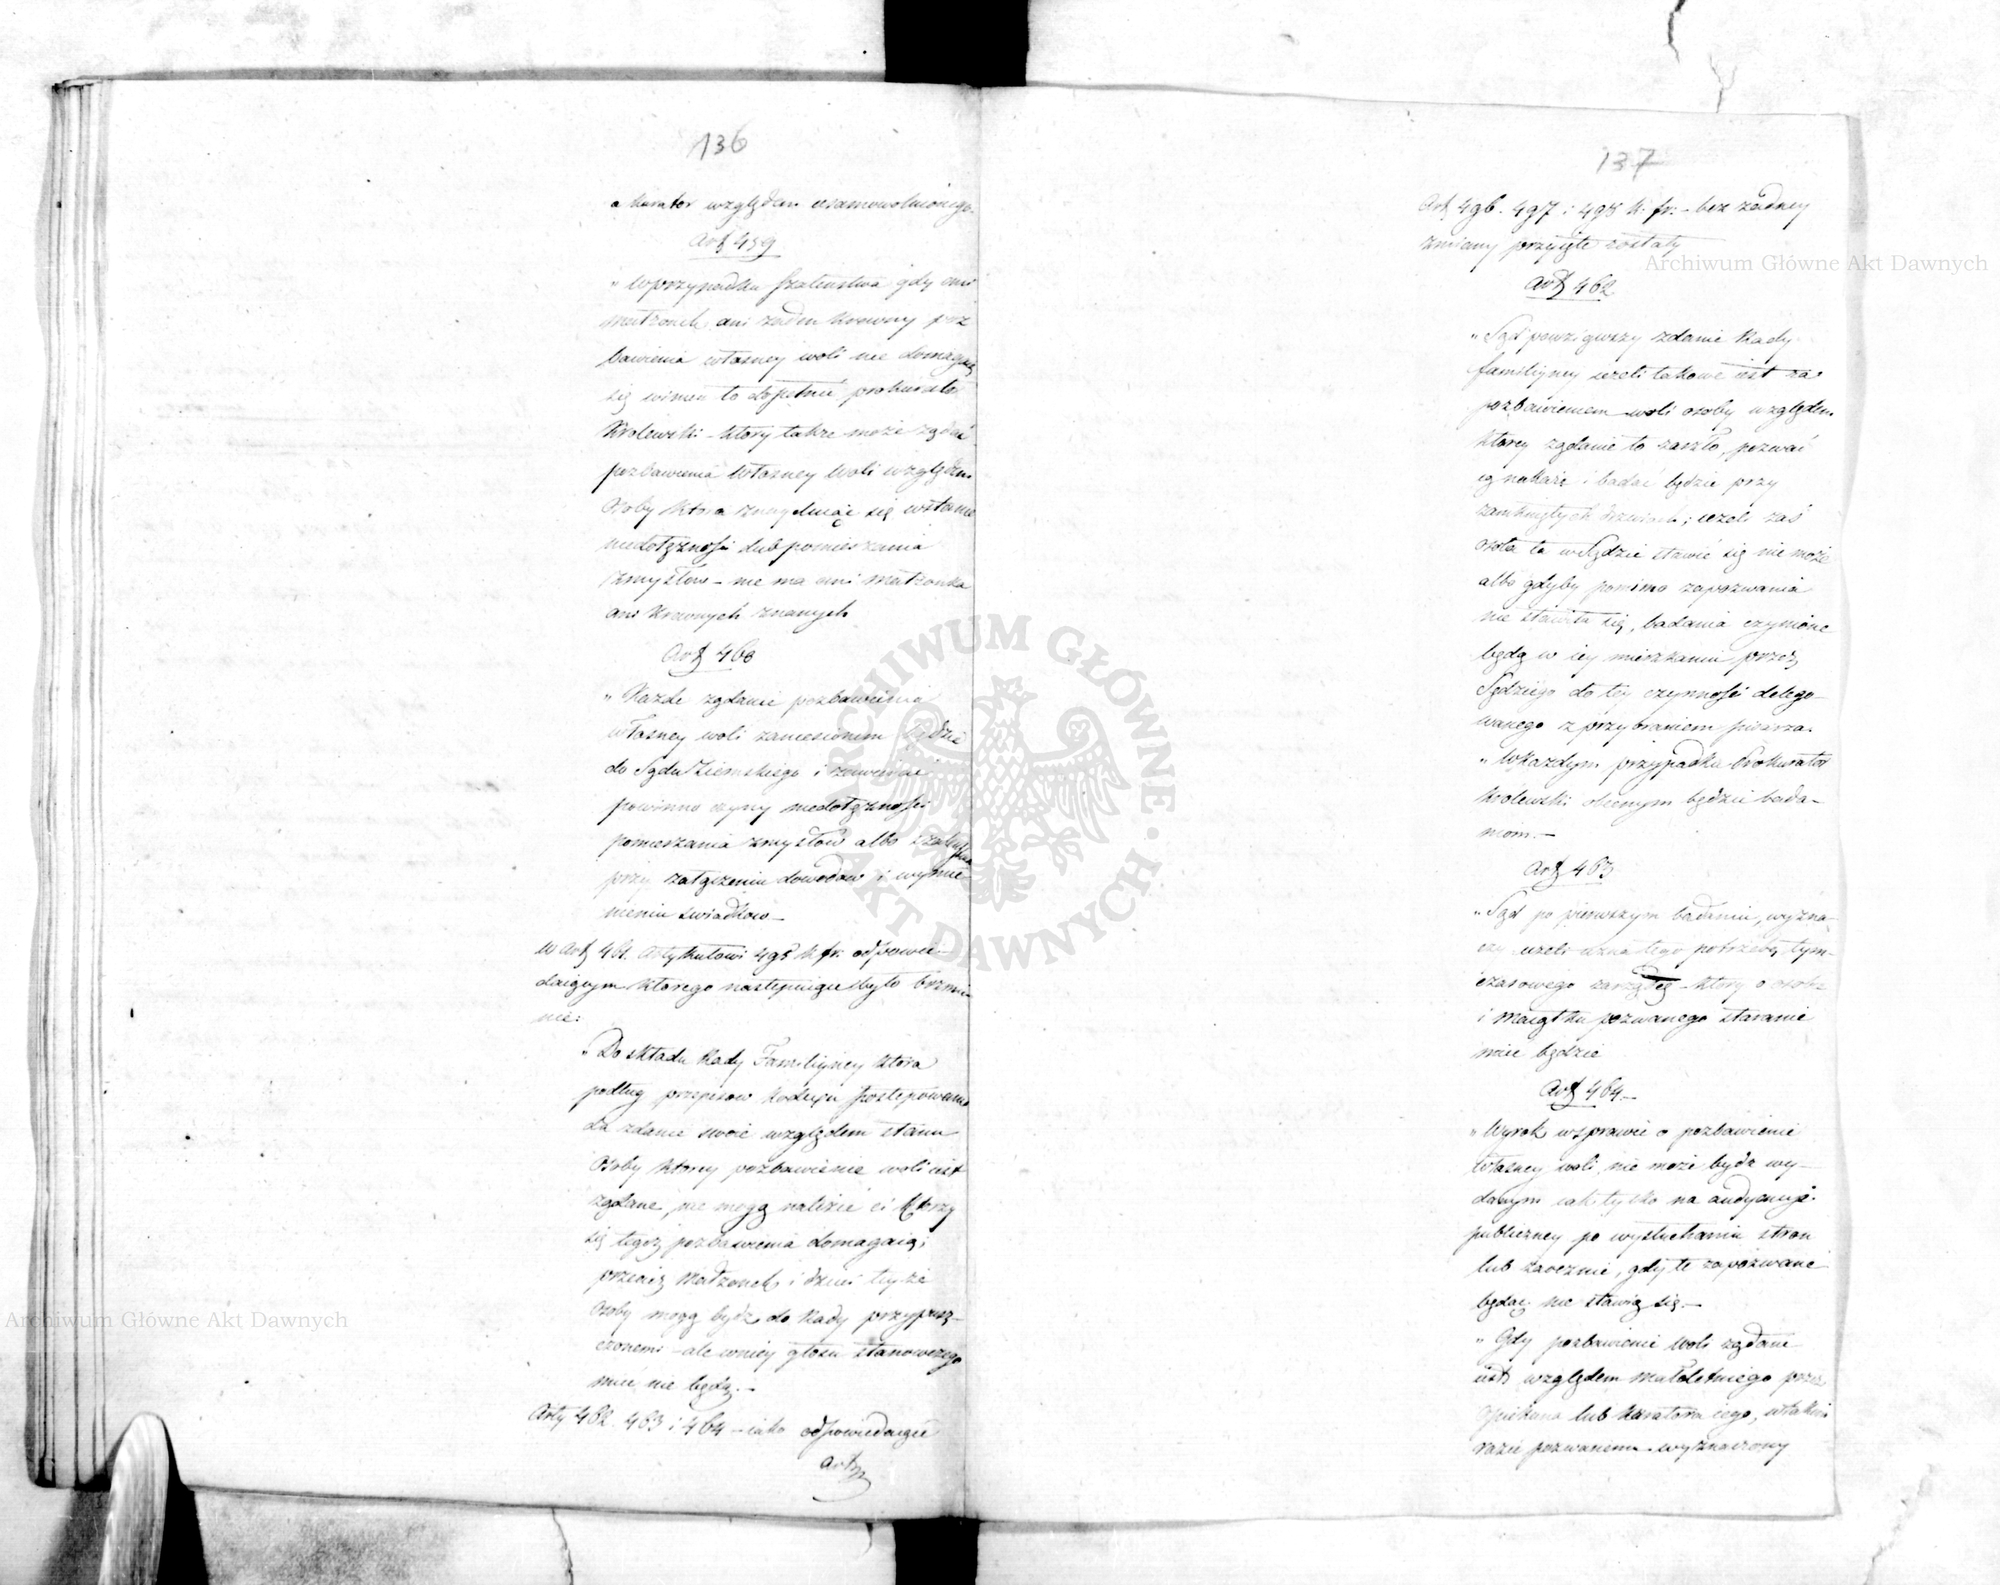 136
a kurator względem usamowolnionego.
Art 459
"W przypadku szaleństwa gdy ani
małżonek ani żaden krewny poz
bawienia własney woli nie domagają
się winien to dopełnić prokurator
Krolewski - ktory także może żądać
pozbawienia własney woli względem
osoby ktora znayduiąc się w stanie
niedołężności lub pomieszania
zmysłow - nie ma ani małżonka
ani krewnych znanych
Art 460
"Każde żądanie pozbawienia
własney woli zaniesionem będzie
do Sądu Ziemskiego i zawierać
powinno czyny niedołężności
pomieszania zmysłow albo szaleństwa
przy załączeniu dowodow i wymie-
nieniu swiadkow -
w Art 461. Artykułowi 495 k. fr. odpowie-
daiącym ktorego następuiące było brzmie-
nie:
"Do składu Rady Familiyney ktora
podług przepisow kodexu postępowania
da zdanie swoie względem stanu
osoby ktorey pozbawienie woli iest
żądane, nie mogą należeć ci ktorzy
się tegoż pozbawienia domagaią;
przecież małżonek i dzieci teyże
osoby mogą bydź do Rady przypusz-
czonemi - ale w niey głosu stanowczego
mieć nie będą. -
Arty 462. 463 i 464 - iako odpowiedaiące
Art
137
Art 496. 497 i 498 k. fr. - bez żadney
zmiany przyięte zostały
Art 462
"Sąd powziąwszy zdanie Rady
familiyney ieżeli takowe iest za
pozbawieniem woli osoby względem
ktorey żądanie to zaszło, pozwać
ią nakaże i badać będzie przy
zamkniętych drzwiach; ieżeli zaś
osoba ta w Sądzie stawić się nie może
albo gdyby pomimo zapozwania
nie stawiła się, badania czynione
będą w iey mieszkaniu przez
Sędziego do tey czynności delego-
wanego z przybraniem pisarza.
"W każdym przypadku Prokurator
Krolewski obecnym będzie bada-
niom. -
Art 463
"Sąd po pierwszym badaniu, wyzna-
czy ieżeli uzna tego potrzebę tym-
czasowego zarządcę - ktory o osobie
i maiątku pozwanego staranie
mieć będzie
Art 464 -
"Wyrok w sprawie o pozbawienie
własney woli, nie może bydź wy-
danym iak tylko na audyencyi
publiczney po wysłuchaniu stron
lub zaocznie, gdy te zapozwane
będąc nie stawią się. -
"Gdy pozbawienie woli żądane
iest względem małoletniego przez
opiekuna lub kuratora iego, w takim
razie pozwaniem wyznaczony
Archiwum Główne Akt Dawnych
Archiwum Główne Akt Dawnych
ARCHIWUM GŁÓWNE · AKT DAWNYCH ·